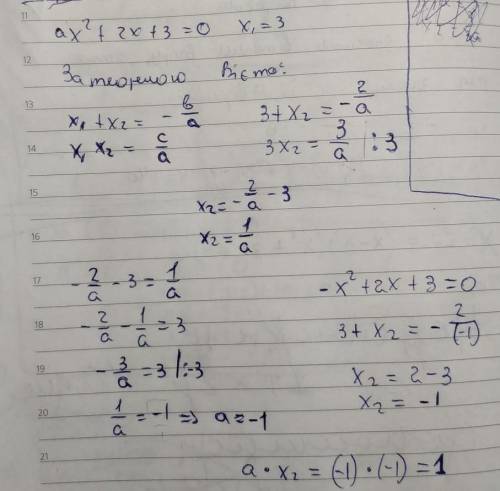 11
ax² + 2x + 3 = 0   x₁ = 3
12
За теоремою Вієта:
13
x₁ + x₂ = -b/a   3 + x₂ = -2/a
14
x₁ x₂ = c/a   3x₂ = 3/a |:3
15
x₂ = -2/a - 3
16
x₂ = 1/a
17
-2/a - 3 = 1/a   -x² + 2x + 3 = 0
18
-2/a - 1/a = 3   3 + x₂ = -2/(-1)
19
-3/a = 3 |:-3   x₂ = 2 - 3
20
1/a = -1 => a = -1   x₂ = -1
21
a · x₂ = (-1) · (-1) = 1